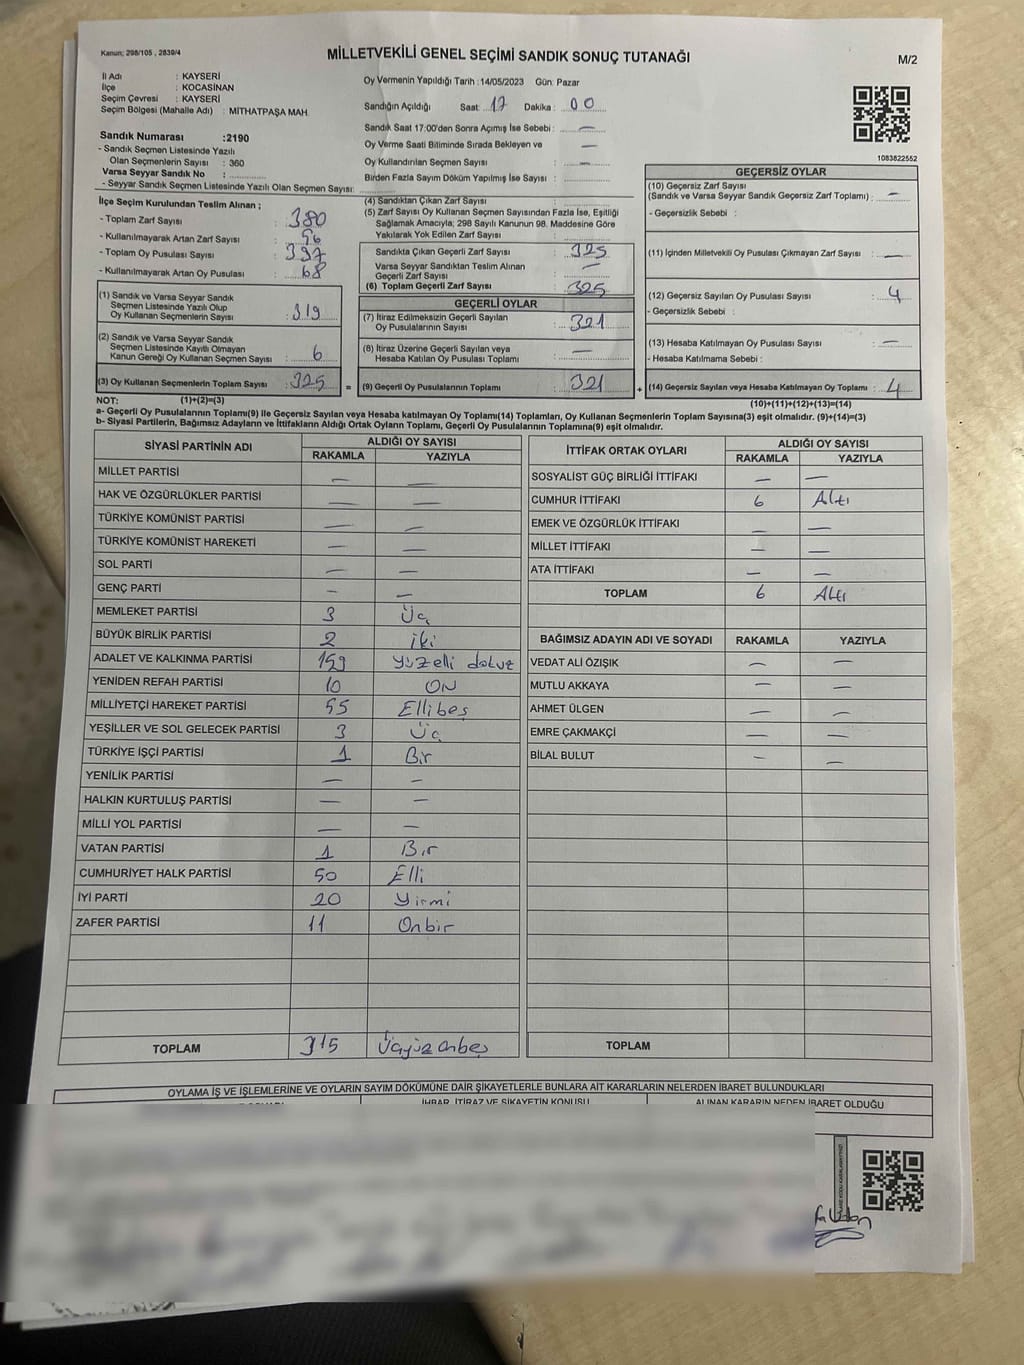 Kanun; 298/105 , 2839/4
MİLLETVEKİLİ GENEL SEÇİMİ SANDIK SONUÇ TUTANAĞI
M/2
İl Adı : KAYSERİ
İlçe : KOCASİNAN
Seçim Çevresi : KAYSERİ
Seçim Bölgesi (Mahalle Adı) : MİTHATPAŞA MAH.
Oy Vermenin Yapıldığı Tarih : 14/05/2023 Gün: Pazar
Sandığın Açıldığı Saat: 17 Dakika : 00
Sandık Saat 17:00'den Sonra Açımış İse Sebebi : —
Oy Verme Saati Bitiminde Sırada Bekleyen ve —
Oy Kullandırılan Seçmen Sayısı : —
Birden Fazla Sayım Döküm Yapılmış İse Sayısı :
1083822552
Sandık Numarası :2190
- Sandık Seçmen Listesinde Yazılı
Olan Seçmenlerin Sayısı : 360
Varsa Seyyar Sandık No :
- Seyyar Sandık Seçmen Listesinde Yazılı Olan Seçmen Sayısı:
İlçe Seçim Kurulundan Teslim Alınan ;
- Toplam Zarf Sayısı : 380
- Kullanılmayarak Artan Zarf Sayısı :
- Toplam Oy Pusulası Sayısı : 397
- Kullanılmayarak Artan Oy Pusulası : 68
(1) Sandık ve Varsa Seyyar Sandık
Seçmen Listesinde Yazılı Olup
Oy Kullanan Seçmenlerin Sayısı : 319
(2) Sandık ve Varsa Seyyar Sandık
Seçmen Listesinde Kayıtlı Olmayan
Kanun Gereği Oy Kullanan Seçmen Sayısı : 6
(3) Oy Kullanan Seçmenlerin Toplam Sayısı : 325 =
(4) Sandıktan Çıkan Zarf Sayısı :
(5) Zarf Sayısı Oy Kullanan Seçmen Sayısından Fazla İse, Eşitliği
Sağlamak Amacıyla; 298 Sayılı Kanunun 98. Maddesine Göre
Yakılarak Yok Edilen Zarf Sayısı :
Sandıkta Çıkan Geçerli Zarf Sayısı : 325
Varsa Seyyar Sandıktan Teslim Alınan —
Geçerli Zarf Sayısı :
(6) Toplam Geçerli Zarf Sayısı : 325
GEÇERLİ OYLAR
(7) İtiraz Edilmeksizin Geçerli Sayılan
Oy Pusulalarının Sayısı : 321
(8) İtiraz Üzerine Geçerli Sayılan veya
Hesaba Katılan Oy Pusulası Toplamı : —
(9) Geçerli Oy Pusulalarının Toplamı : 321 +
GEÇERSİZ OYLAR
(10) Geçersiz Zarf Sayısı
(Sandık ve Varsa Seyyar Sandık Geçersiz Zarf Toplamı) : —
- Geçersizlik Sebebi :
(11) İçinden Milletvekili Oy Pusulası Çıkmayan Zarf Sayısı : —
(12) Geçersiz Sayılan Oy Pusulası Sayısı : 4
- Geçersizlik Sebebi :
(13) Hesaba Katılmayan Oy Pusulası Sayısı : —
- Hesaba Katılmama Sebebi :
(14) Geçersiz Sayılan veya Hesaba Katılmayan Oy Toplamı : 4
NOT: (1)+(2)=(3) (10)+(11)+(12)+(13)=(14)
a- Geçerli Oy Pusulalarının Toplamı(9) ile Geçersiz Sayılan veya Hesaba katılmayan Oy Toplamı(14) Toplamları, Oy Kullanan Seçmenlerin Toplam Sayısına(3) eşit olmalıdır. (9)+(14)=(3)
b- Siyasi Partilerin, Bağımsız Adayların ve İttifakların Aldığı Ortak Oyların Toplamı, Geçerli Oy Pusulalarının Toplamına(9) eşit olmalıdır.
SİYASİ PARTİNİN ADI ALDIĞI OY SAYISI
RAKAMLA YAZIYLA
MİLLET PARTİSİ — —
HAK VE ÖZGÜRLÜKLER PARTİSİ — —
TÜRKİYE KOMÜNİST PARTİSİ — —
TÜRKİYE KOMÜNİST HAREKETİ — —
SOL PARTİ — —
GENÇ PARTİ — —
MEMLEKET PARTİSİ 3 Üç
BÜYÜK BİRLİK PARTİSİ 2 iki
ADALET VE KALKINMA PARTİSİ 159 yüzelli dokuz
YENİDEN REFAH PARTİSİ 10 ON
MİLLİYETÇİ HAREKET PARTİSİ 55 Ellibeş
YEŞİLLER VE SOL GELECEK PARTİSİ 3 Üç
TÜRKİYE İŞÇİ PARTİSİ 1 Bir
YENİLİK PARTİSİ — —
HALKIN KURTULUŞ PARTİSİ — —
MİLLİ YOL PARTİSİ — —
VATAN PARTİSİ 1 Bir
CUMHURİYET HALK PARTİSİ 50 Elli
İYİ PARTİ 20 Yirmi
ZAFER PARTİSİ 11 Onbir
TOPLAM 315 Üçyüz onbeş
İTTİFAK ORTAK OYLARI ALDIĞI OY SAYISI
RAKAMLA YAZIYLA
SOSYALİST GÜÇ BİRLİĞİ İTTİFAKI — —
CUMHUR İTTİFAKI 6 Altı
EMEK VE ÖZGÜRLÜK İTTİFAKI — —
MİLLET İTTİFAKI — —
ATA İTTİFAKI — —
TOPLAM 6 Altı
BAĞIMSIZ ADAYIN ADI VE SOYADI RAKAMLA YAZIYLA
VEDAT ALİ ÖZIŞIK — —
MUTLU AKKAYA — —
AHMET ÜLGEN — —
EMRE ÇAKMAKÇİ — —
BİLAL BULUT — —
TOPLAM
OYLAMA İŞ VE İŞLEMLERİNE VE OYLARIN SAYIM DÖKÜMÜNE DAİR ŞİKAYETLERLE BUNLARA AİT KARARLARIN NELERDEN İBARET BULUNDUKLARI
İHBAR, İTİRAZ VE ŞİKAYETİN KONUSU
ALINAN KARARIN NEDEN İBARET OLDUĞU